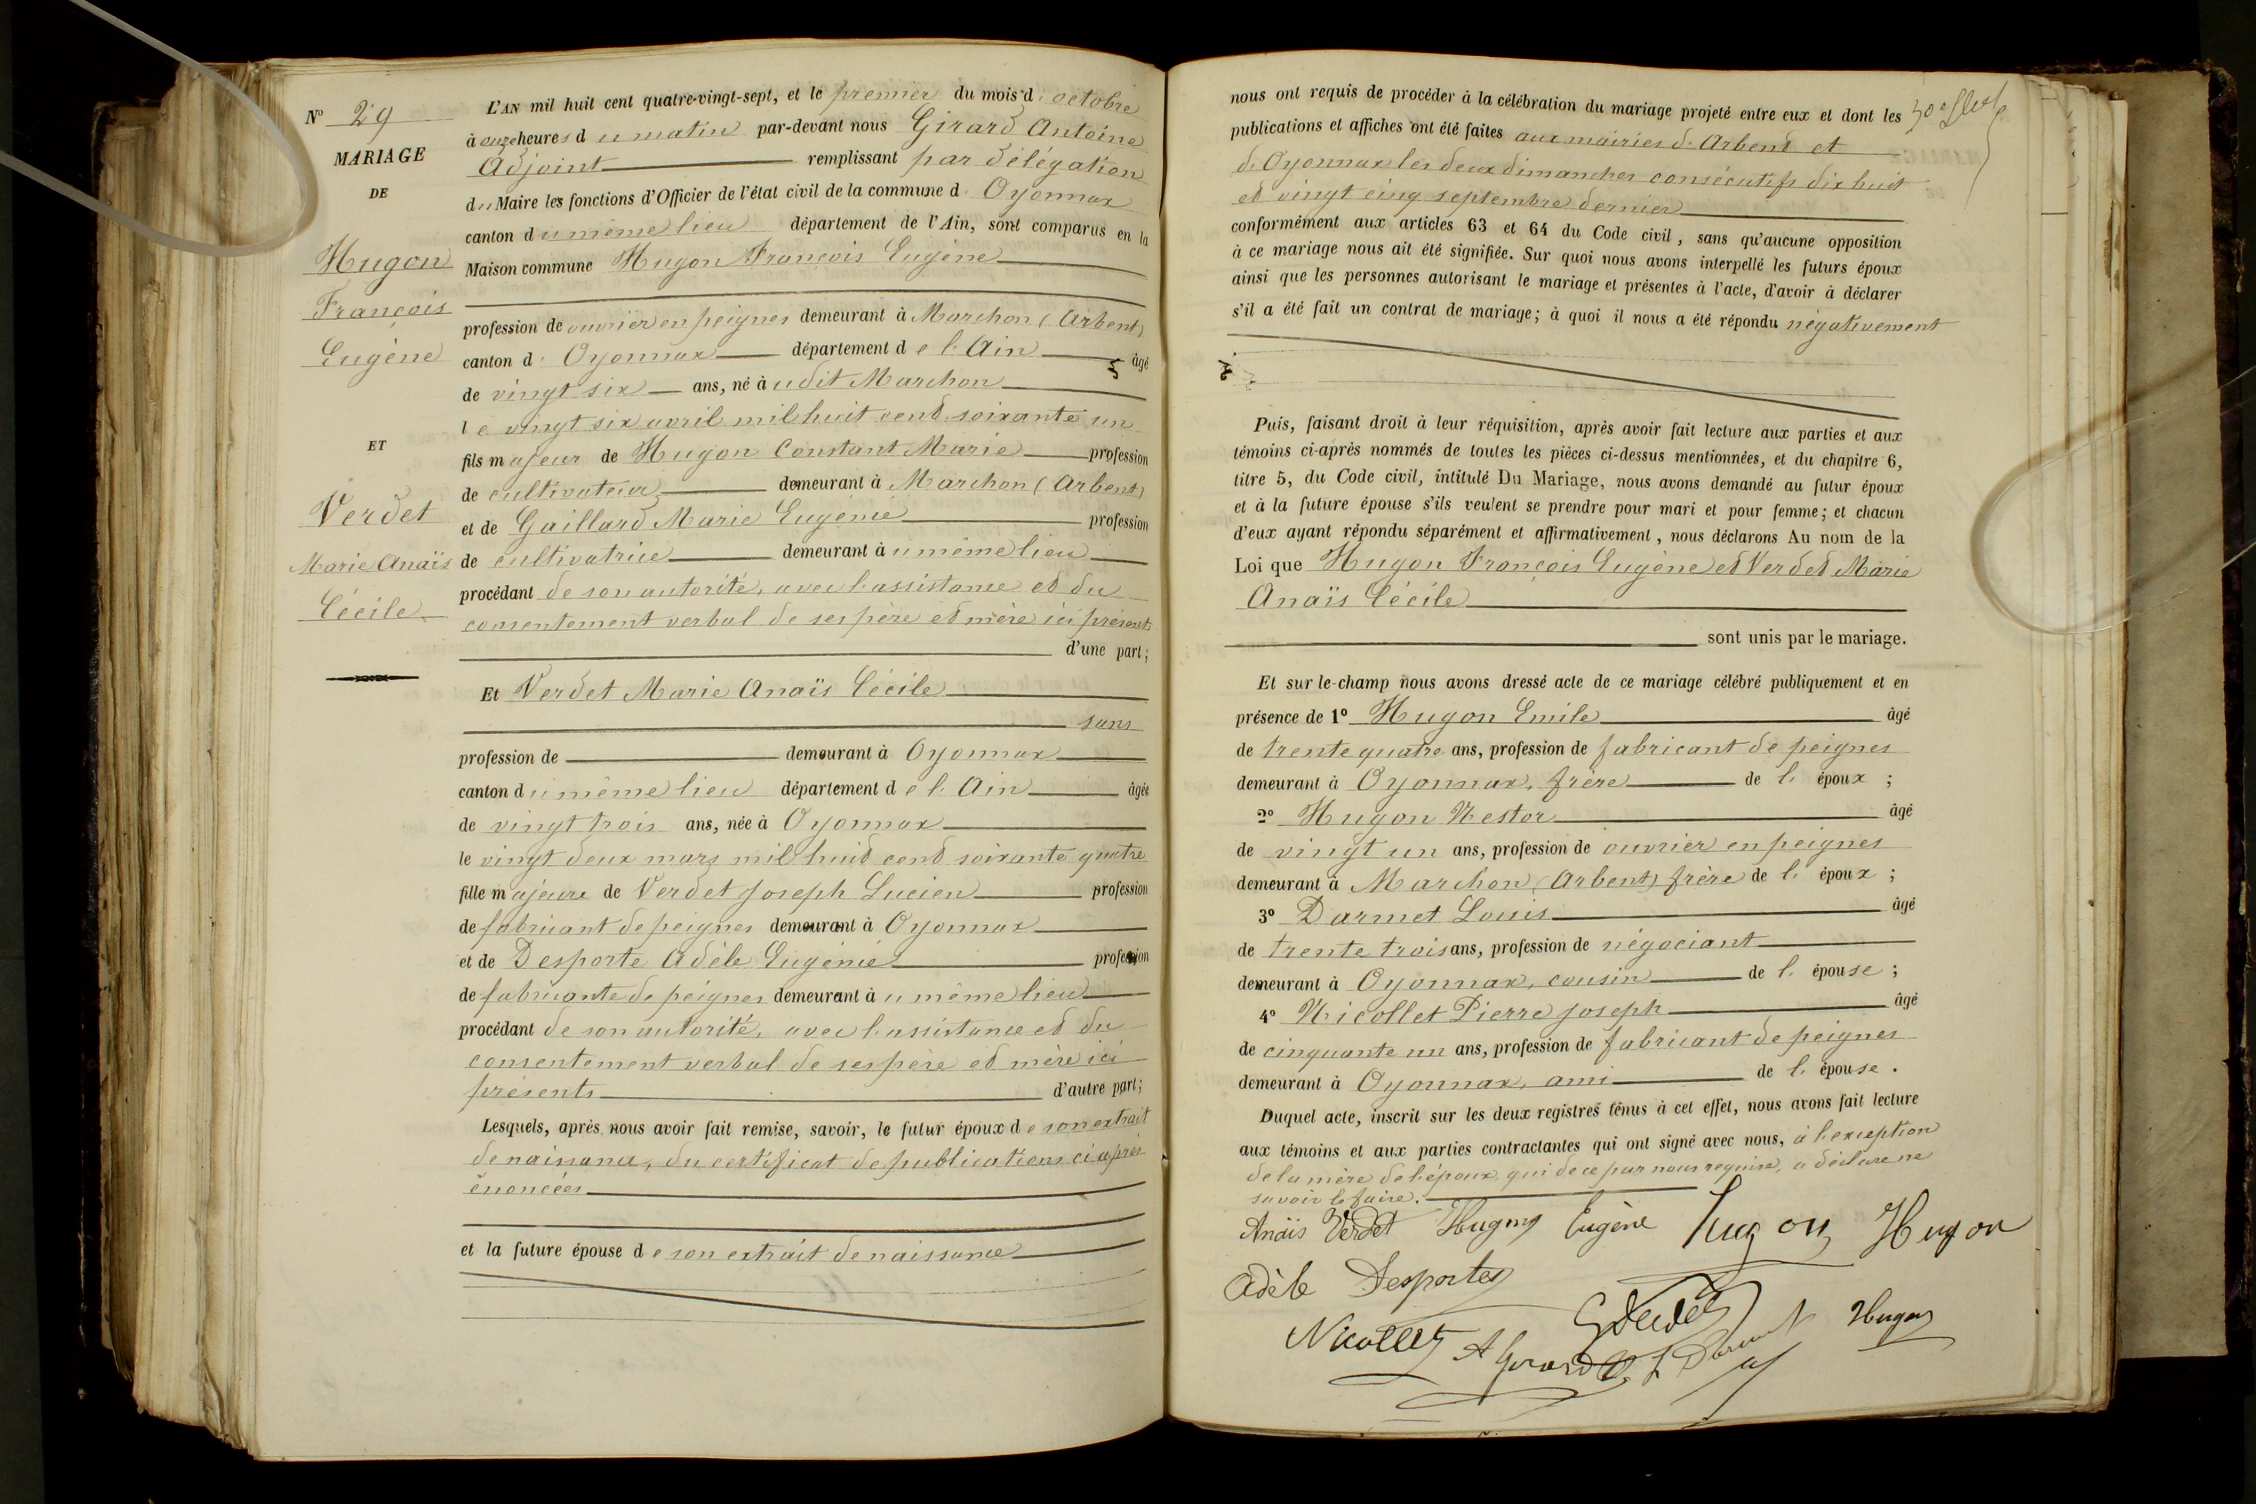 N° 29
MARIAGE
DE
Hugon
François
Eugène
ET
Verdet
Marie Anaïs
Cécile
L'AN mil huit cent quatre-vingt-sept, et le premier du mois d' octobre
à onze heures du matin par-devant nous Girard Antoine
Adjoint remplissant par délégation
du Maire les fonctions d'Officier de l'état civil de la commune d' Oyonnax
canton du même lieu département de l'Ain, sont comparus en la
Maison commune Hugon François Eugène
profession de ouvrier en peignes demeurant à Marchon (Arbent)
canton d' Oyonnax département de l'Ain âgé
de vingt six ans, né audit Marchon
le vingt six avril mil huit cent soixante un
fils majeur de Hugon Constant Marie profession
de cultivateur demeurant à Marchon (Arbent)
et de Gaillard Marie Eugénie profession
de cultivatrice demeurant au même lieu
procédant de son autorité, avec l'assistance et du
consentement verbal de ses père et mère ici présents
d'une part;
Et Verdet Marie Anaïs Cécile
sans
profession de demeurant à Oyonnax
canton du même lieu département de l'Ain âgée
de vingt trois ans, née à Oyonnax
le vingt deux mars mil huit cent soixante quatre
fille majeure de Verdet Joseph Lucien profession
de fabricant de peignes demeurant à Oyonnax
et de Desporte Adèle Eugénie profession
de fabricante de peignes demeurant au même lieu
procédant de son autorité, avec l'assistance et du
consentement verbal de ses père et mère ici
présents d'autre part;
Lesquels, après nous avoir fait remise, savoir, le futur époux de son extrait
de naissance, du certificat de publications ci après
énoncées
et la future épouse de son extrait de naissance
nous ont requis de procéder à la célébration du mariage projeté entre eux et dont les
publications et affiches ont été faites aux mairies d'Arbent et
d'Oyonnax les deux dimanches consécutifs dix huit
et vingt cinq septembre dernier
conformément aux articles 63 et 64 du Code civil, sans qu'aucune opposition
à ce mariage nous ait été signifiée. Sur quoi nous avons interpellé les futurs époux
ainsi que les personnes autorisant le mariage et présentes à l'acte, d'avoir à déclarer
s'il a été fait un contrat de mariage; à quoi il nous a été répondu négativement
Puis, faisant droit à leur réquisition, après avoir fait lecture aux parties et aux
témoins ci-après nommés de toutes les pièces ci-dessus mentionnées, et du chapitre 6,
titre 5, du Code civil, intitulé Du Mariage, nous avons demandé au futur époux
et à la future épouse s'ils veulent se prendre pour mari et pour femme; et chacun
d'eux ayant répondu séparément et affirmativement, nous déclarons Au nom de la
Loi que Hugon François Eugène et Verdet Marie
Anaïs Cécile
sont unis par le mariage.
Et sur-le-champ nous avons dressé acte de ce mariage célébré publiquement et en
présence de 1° Hugon Emile âgé
de trente quatre ans, profession de fabricant de peignes
demeurant à Oyonnax, frère de l' époux ;
2° Hugon Nestor âgé
de vingt un ans, profession de ouvrier en peignes
demeurant à Marchon (Arbent) frère de l' époux ;
3° Darmet Louis âgé
de trente trois ans, profession de négociant
demeurant à Oyonnax, cousin de l' épouse ;
4° Nicollet Pierre Joseph âgé
de cinquante un ans, profession de fabricant de peignes
demeurant à Oyonnax, ami de l' épouse .
Duquel acte, inscrit sur les deux registres tenus à cet effet, nous avons fait lecture
aux témoins et aux parties contractantes qui ont signé avec nous, à l'exception
de la mère de l'époux, qui de ce par nous requise, a déclaré ne
savoir le faire.
Anaïs Verdet Hugon Eugène Hugon Hugon
Adèle Desportes
Nicollet A Girard L Darmet Hugon